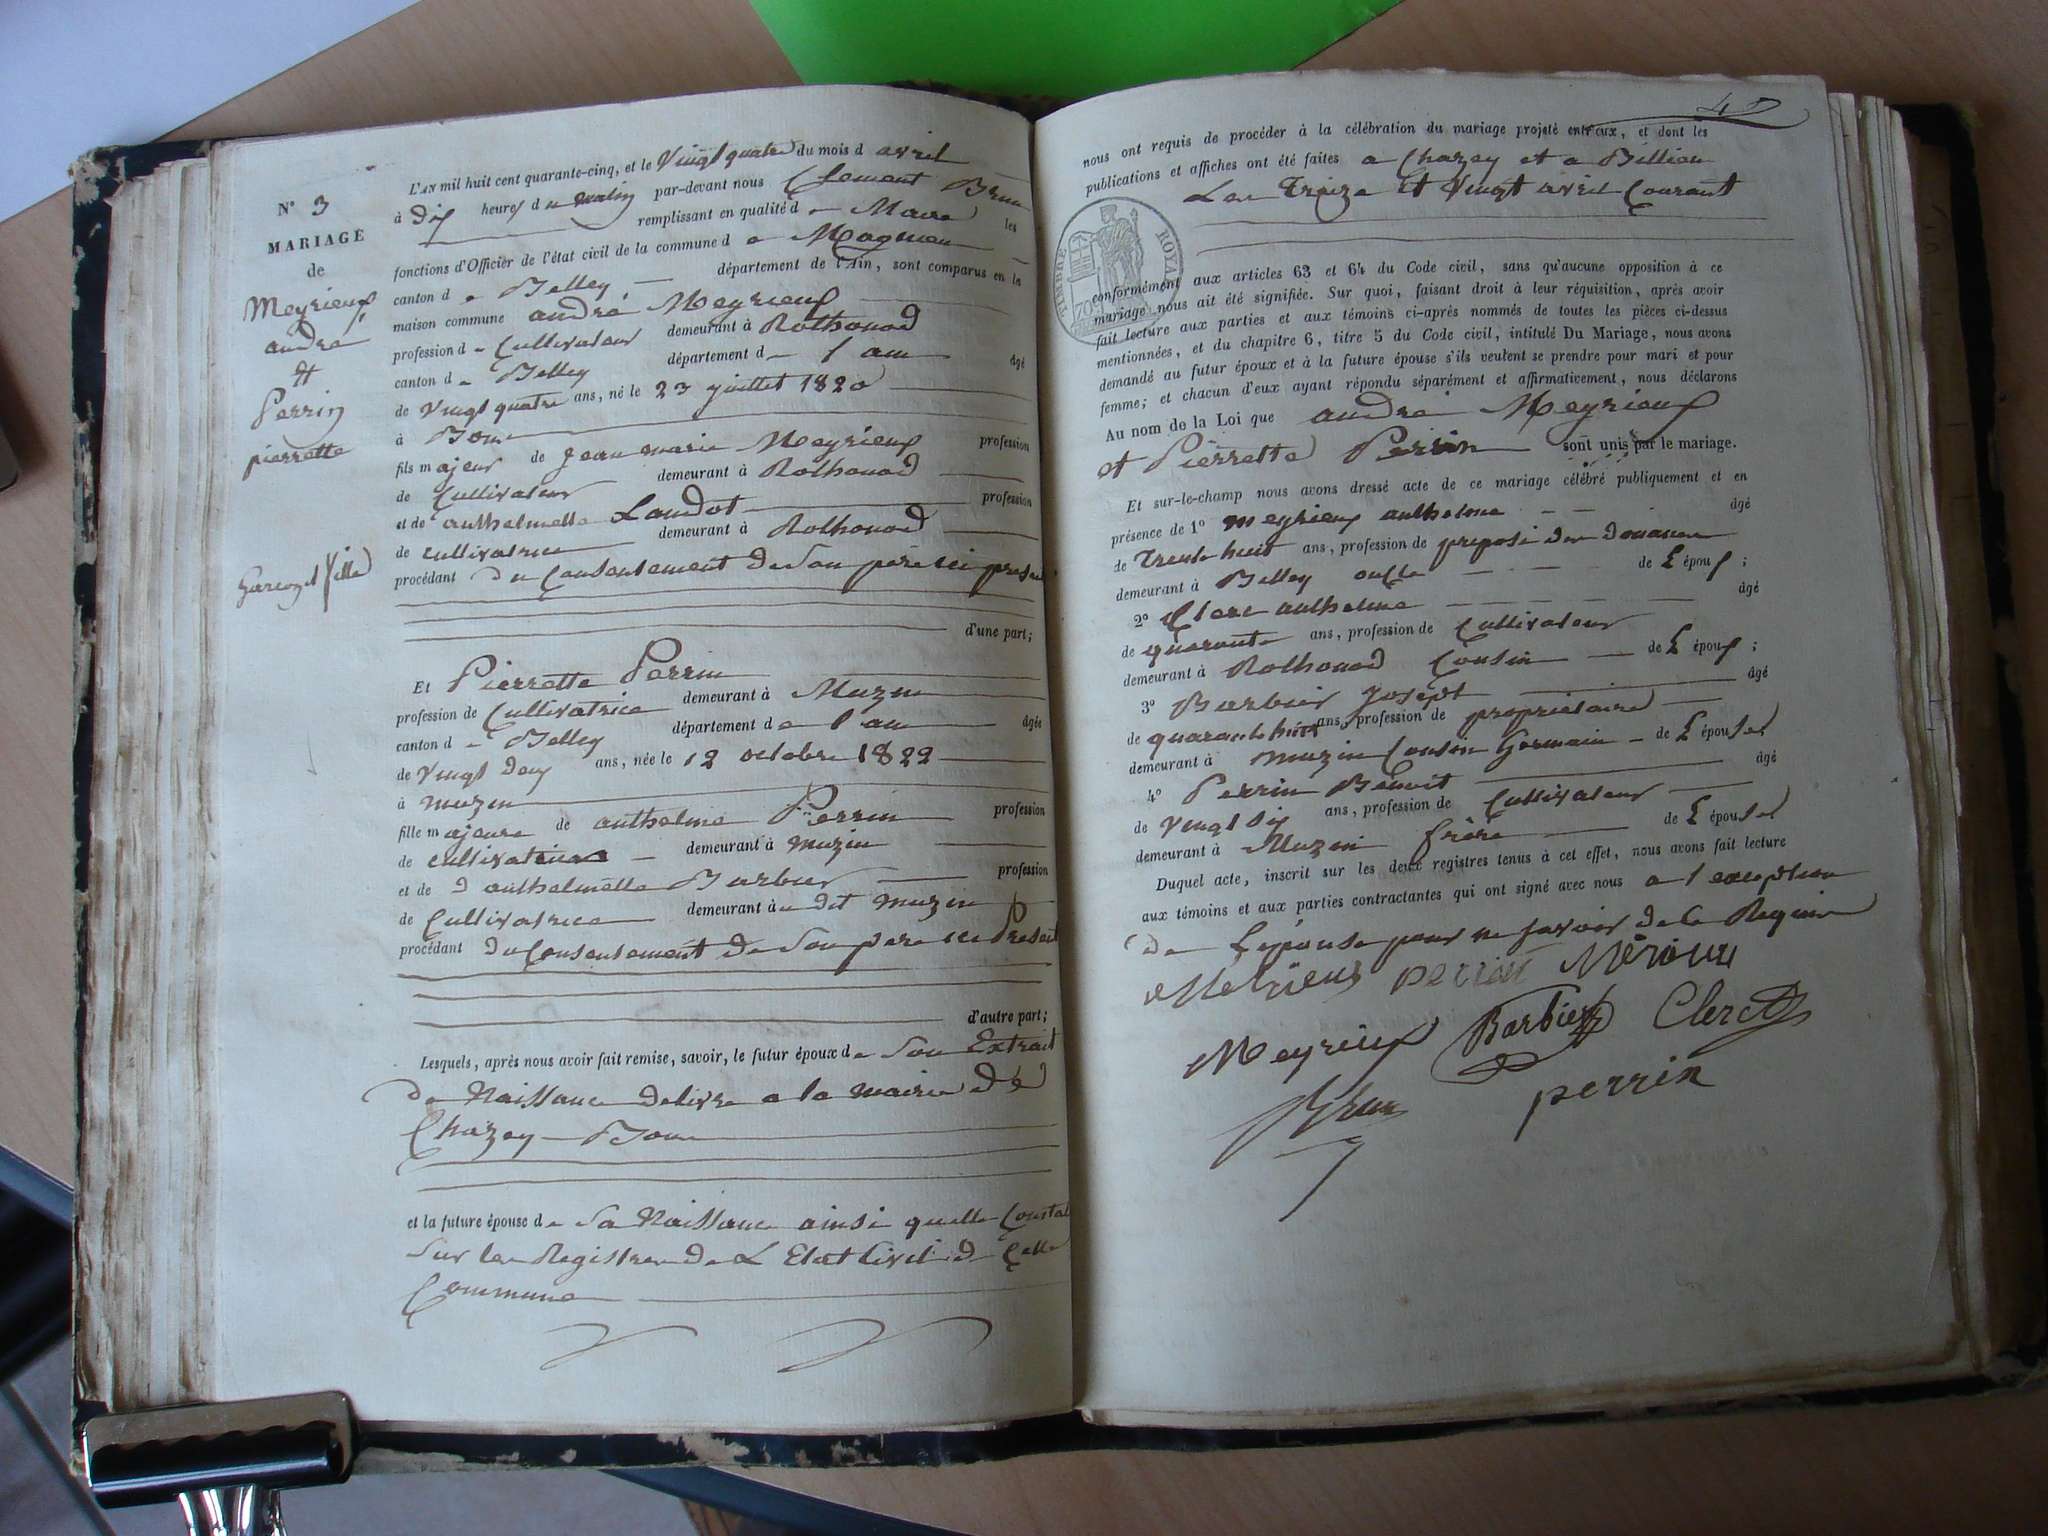 N° 3
MARIAGE
de
Meyrieux
andré
et
Perrin
pierrette
L'AN mil huit cent quarante-cinq, et le Vingt quatre du mois d avril
à dix heures du matin par-devant nous Clement Brun
remplissant en qualité de Maire les
fonctions d'Officier de l'état civil de la commune de Magnieu
canton de Belley département de l'Ain, sont comparus en la
maison commune andré Meyrieux
profession de Cultivateur demeurant à Rothonod
canton de Belley département de l ain âgé
de Vingt quatre ans, né le 23 juillet 1820
à Bons
fils majeur de jean marie Meyrieux profession
de Cultivateur demeurant à Rothonod
et de anthelmette Landot profession
de cultivatrice demeurant à Rothonod
procédant du Consentement de Son père ici present
d'une part;
Et Pierrette Perrin
profession de Cultivatrice demeurant à Muzin
canton de Belley département de l ain âgée
de Vingt deux ans, née le 12 octobre 1822
à muzin
fille majeure de anthelme Perrin profession
de cultivatrice demeurant à muzin
et de d anthelmette Barbier profession
de Cultivatrice demeurant à u dit muzin
procédant du Consentement de Son pere ici Present
d'autre part;
Lesquels, après nous avoir fait remise, savoir, le futur époux de Son Extrait
de Naissance delivre a la mairie de
Chazey Bons
et la future épouse de Sa Naissance ainsi quelle Constat
Sur les Registres de L Etat Civil de Cette
Commune
40
nous ont requis de procéder à la célébration du mariage projeté entr'eux, et dont les
publications et affiches ont été faites a Chazey et a Billieu
Les Treize et Vingt avril Courant
TIMBRE ROYAL
70c
conformément aux articles 63 et 64 du Code civil, sans qu'aucune opposition à ce
mariage nous ait été signifiée. Sur quoi, faisant droit à leur réquisition, après avoir
fait lecture aux parties et aux témoins ci-après nommés de toutes les pièces ci-dessus
mentionnées, et du chapitre 6, titre 5 du Code civil, intitulé Du Mariage, nous avons
demandé au futur époux et à la future épouse s'ils veulent se prendre pour mari et pour
femme; et chacun d'eux ayant répondu séparément et affirmativement, nous déclarons
Au nom de la Loi que andré Meyrieux
et Pierrette Perrin sont unis par le mariage.
Et sur-le-champ nous avons dressé acte de ce mariage célébré publiquement et en
présence de 1° meyrieux anthelme âgé
de Trente huit ans, profession de preposé des douanes
demeurant à Belley oncle de L époux;
2° Clerc anthelme âgé
de quarante ans, profession de Cultivateur
demeurant à Rothonod Cousin de L époux;
3° Barbier joseph âgé
de quarante huit ans, profession de propriétaire
demeurant à muzin Cousin Germain de L épouse
4° Perrin Benoit âgé
de Vingt six ans, profession de Cultivateur
demeurant à Muzin frère de L épouse
Duquel acte, inscrit sur les deux registres tenus à cet effet, nous avons fait lecture
aux témoins et aux parties contractantes qui ont signé avec nous a l exception
de Lepouse pour ne savoir de ce Requise
Meyrieux perrin
Meyrieux Barbier Clerc
Brun perrin